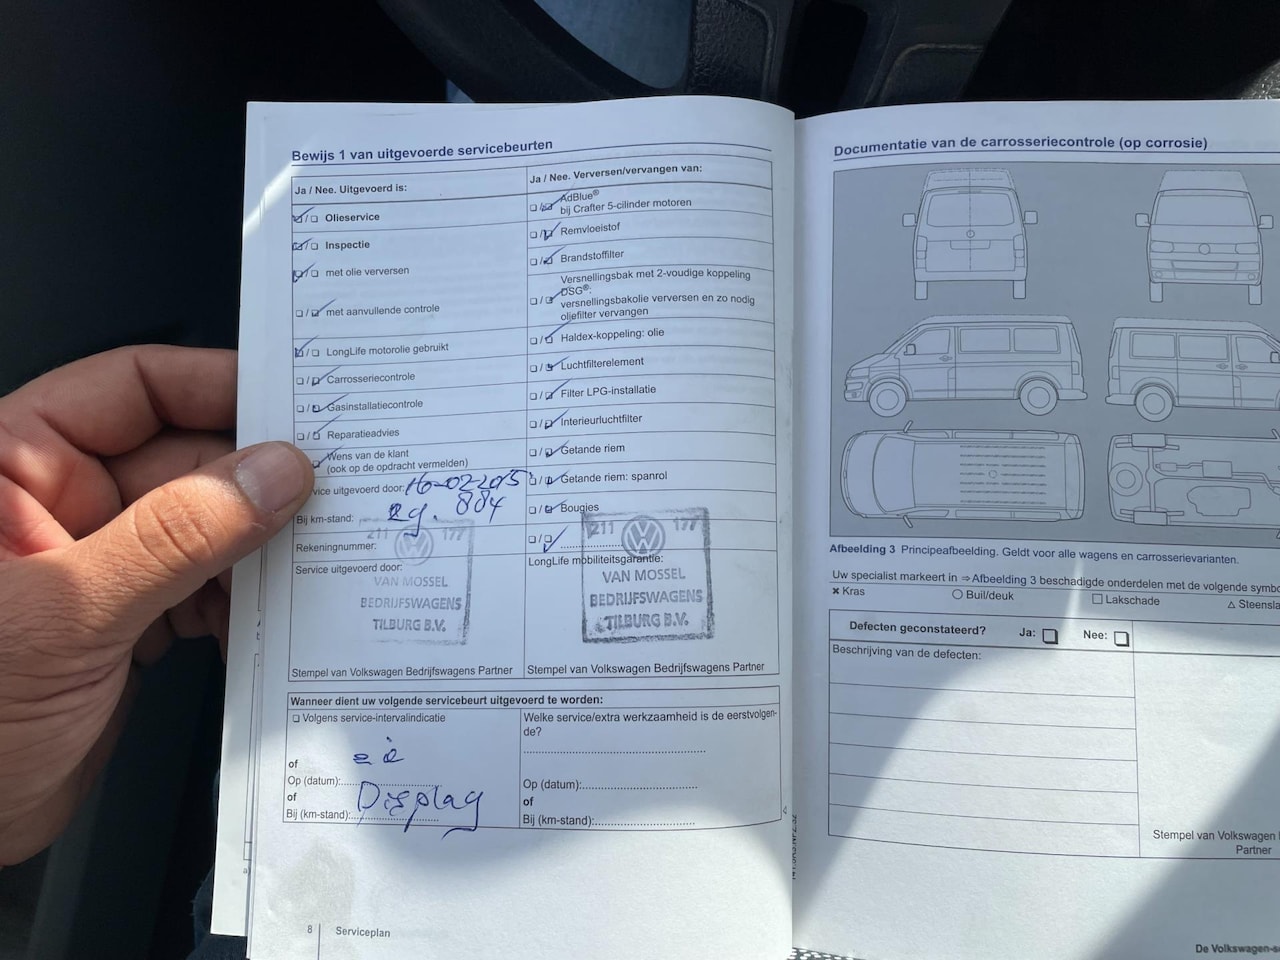 Bewijs 1 van uitgevoerde servicebeurten
Ja / Nee. Uitgevoerd is:
☐/☐ Olieservice
☐/☐ Inspectie
☐/☐ met olie verversen
☐/☐ met aanvullende controle
☐/☐ LongLife motorolie gebruikt
☐/☐ Carrosseriecontrole
☐/☐ Gasinstallatiecontrole
☐/☐ Reparatieadvies
Wens van de klant
(ook op de opdracht vermelden)
vice uitgevoerd door: 16-02-2015
Bij km-stand: 29.884
Rekeningnummer:
Service uitgevoerd door:
211 177
VAN MOSSEL
BEDRIJFSWAGENS
TILBURG B.V.
Stempel van Volkswagen Bedrijfswagens Partner
Ja / Nee. Verversen/vervangen van:
☐/☐ AdBlue®
bij Crafter 5-cilinder motoren
☐/☐ Remvloeistof
☐/☐ Brandstoffilter
☐/☐ Versnellingsbak met 2-voudige koppeling
DSG®:
versnellingsbakolie verversen en zo nodig
oliefilter vervangen
☐/☐ Haldex-koppeling: olie
☐/☐ Luchtfilterelement
☐/☐ Filter LPG-installatie
☐/☐ Interieurluchtfilter
☐/☐ Getande riem
☐/☐ Getande riem: spanrol
☐/☐ Bougies
☐/☐ ....................
LongLife mobiliteitsgarantie:
211 177
VAN MOSSEL
BEDRIJFSWAGENS
TILBURG B.V.
Stempel van Volkswagen Bedrijfswagens Partner
Wanneer dient uw volgende servicebeurt uitgevoerd te worden:
☐ Volgens service-intervalindicatie
of
Op (datum):
of
Display
Bij (km-stand):
Welke service/extra werkzaamheid is de eerstvolgen-
de?
Op (datum):
of
Bij (km-stand):
8 Serviceplan
Documentatie van de carrosseriecontrole (op corrosie)
Afbeelding 3 Principeafbeelding. Geldt voor alle wagens en carrosserievarianten.
Uw specialist markeert in ⇒ Afbeelding 3 beschadigde onderdelen met de volgende symbo
✖ Kras ○ Buil/deuk ☐ Lakschade △ Steensla
Defecten geconstateerd? Ja: ☐ Nee: ☐
Beschrijving van de defecten:
Stempel van Volkswagen
Partner
De Volkswagen-se